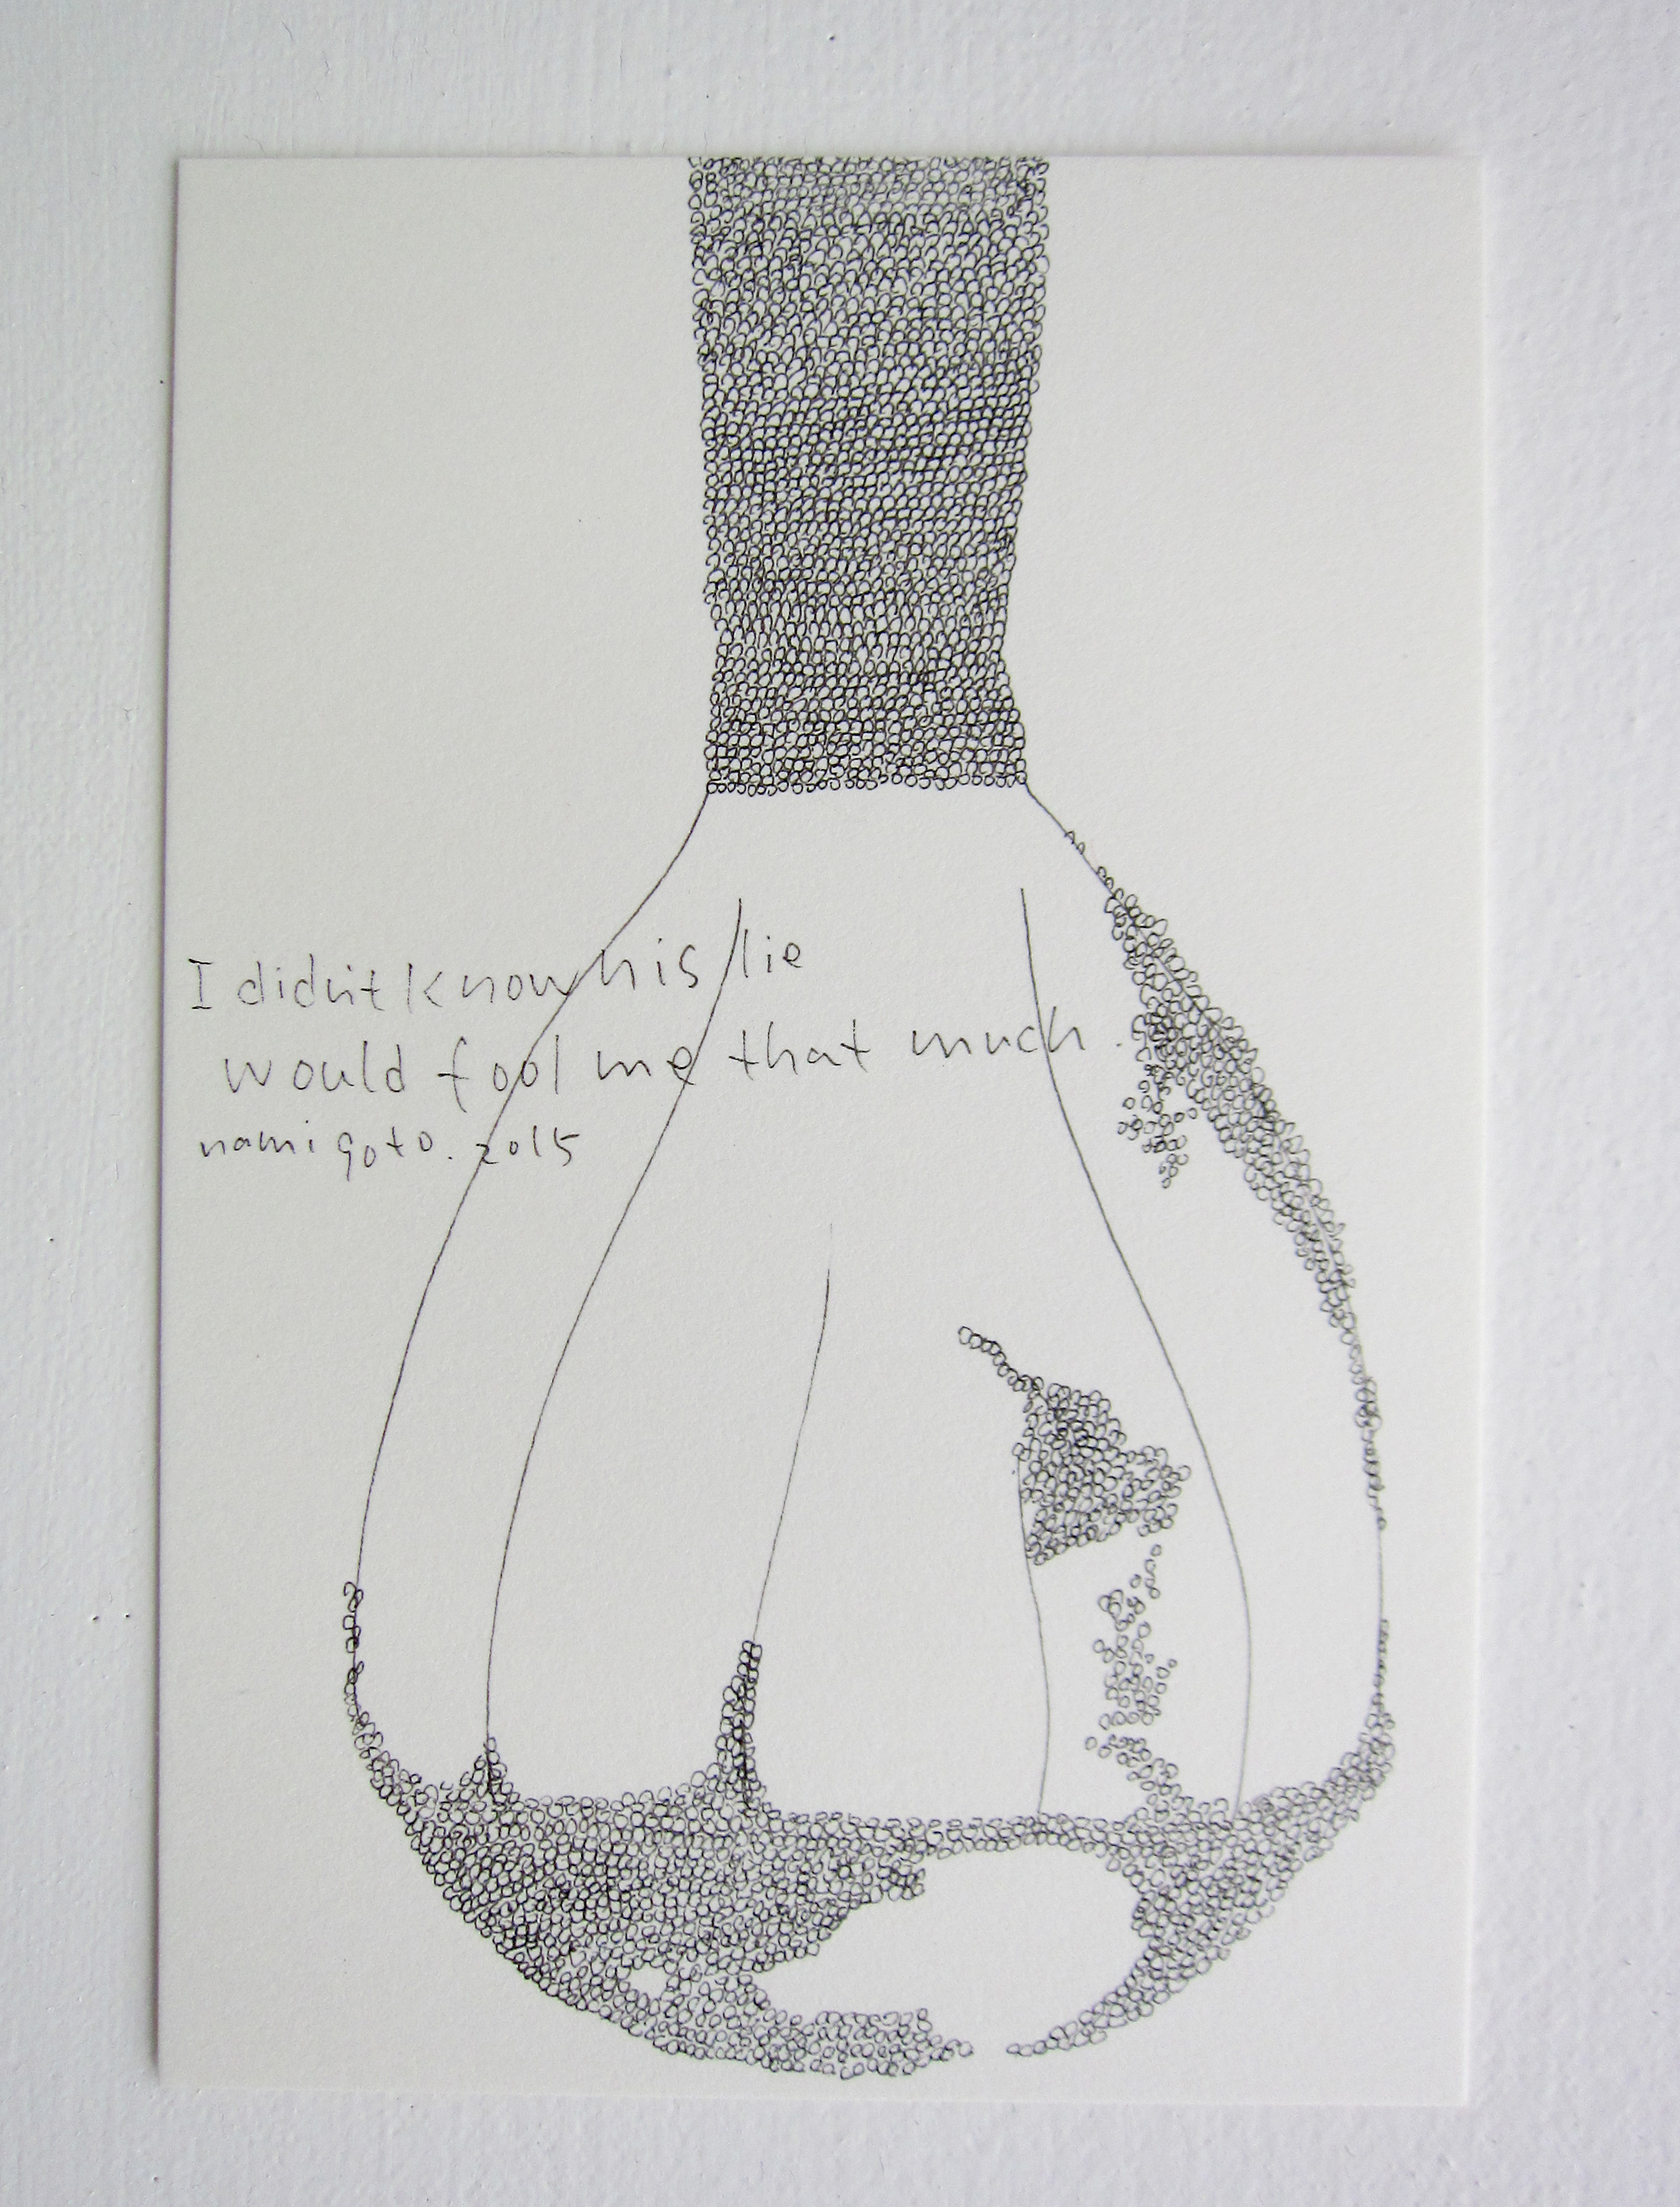 I didn't know his lie
would fool me that much.
nami goto. 2015